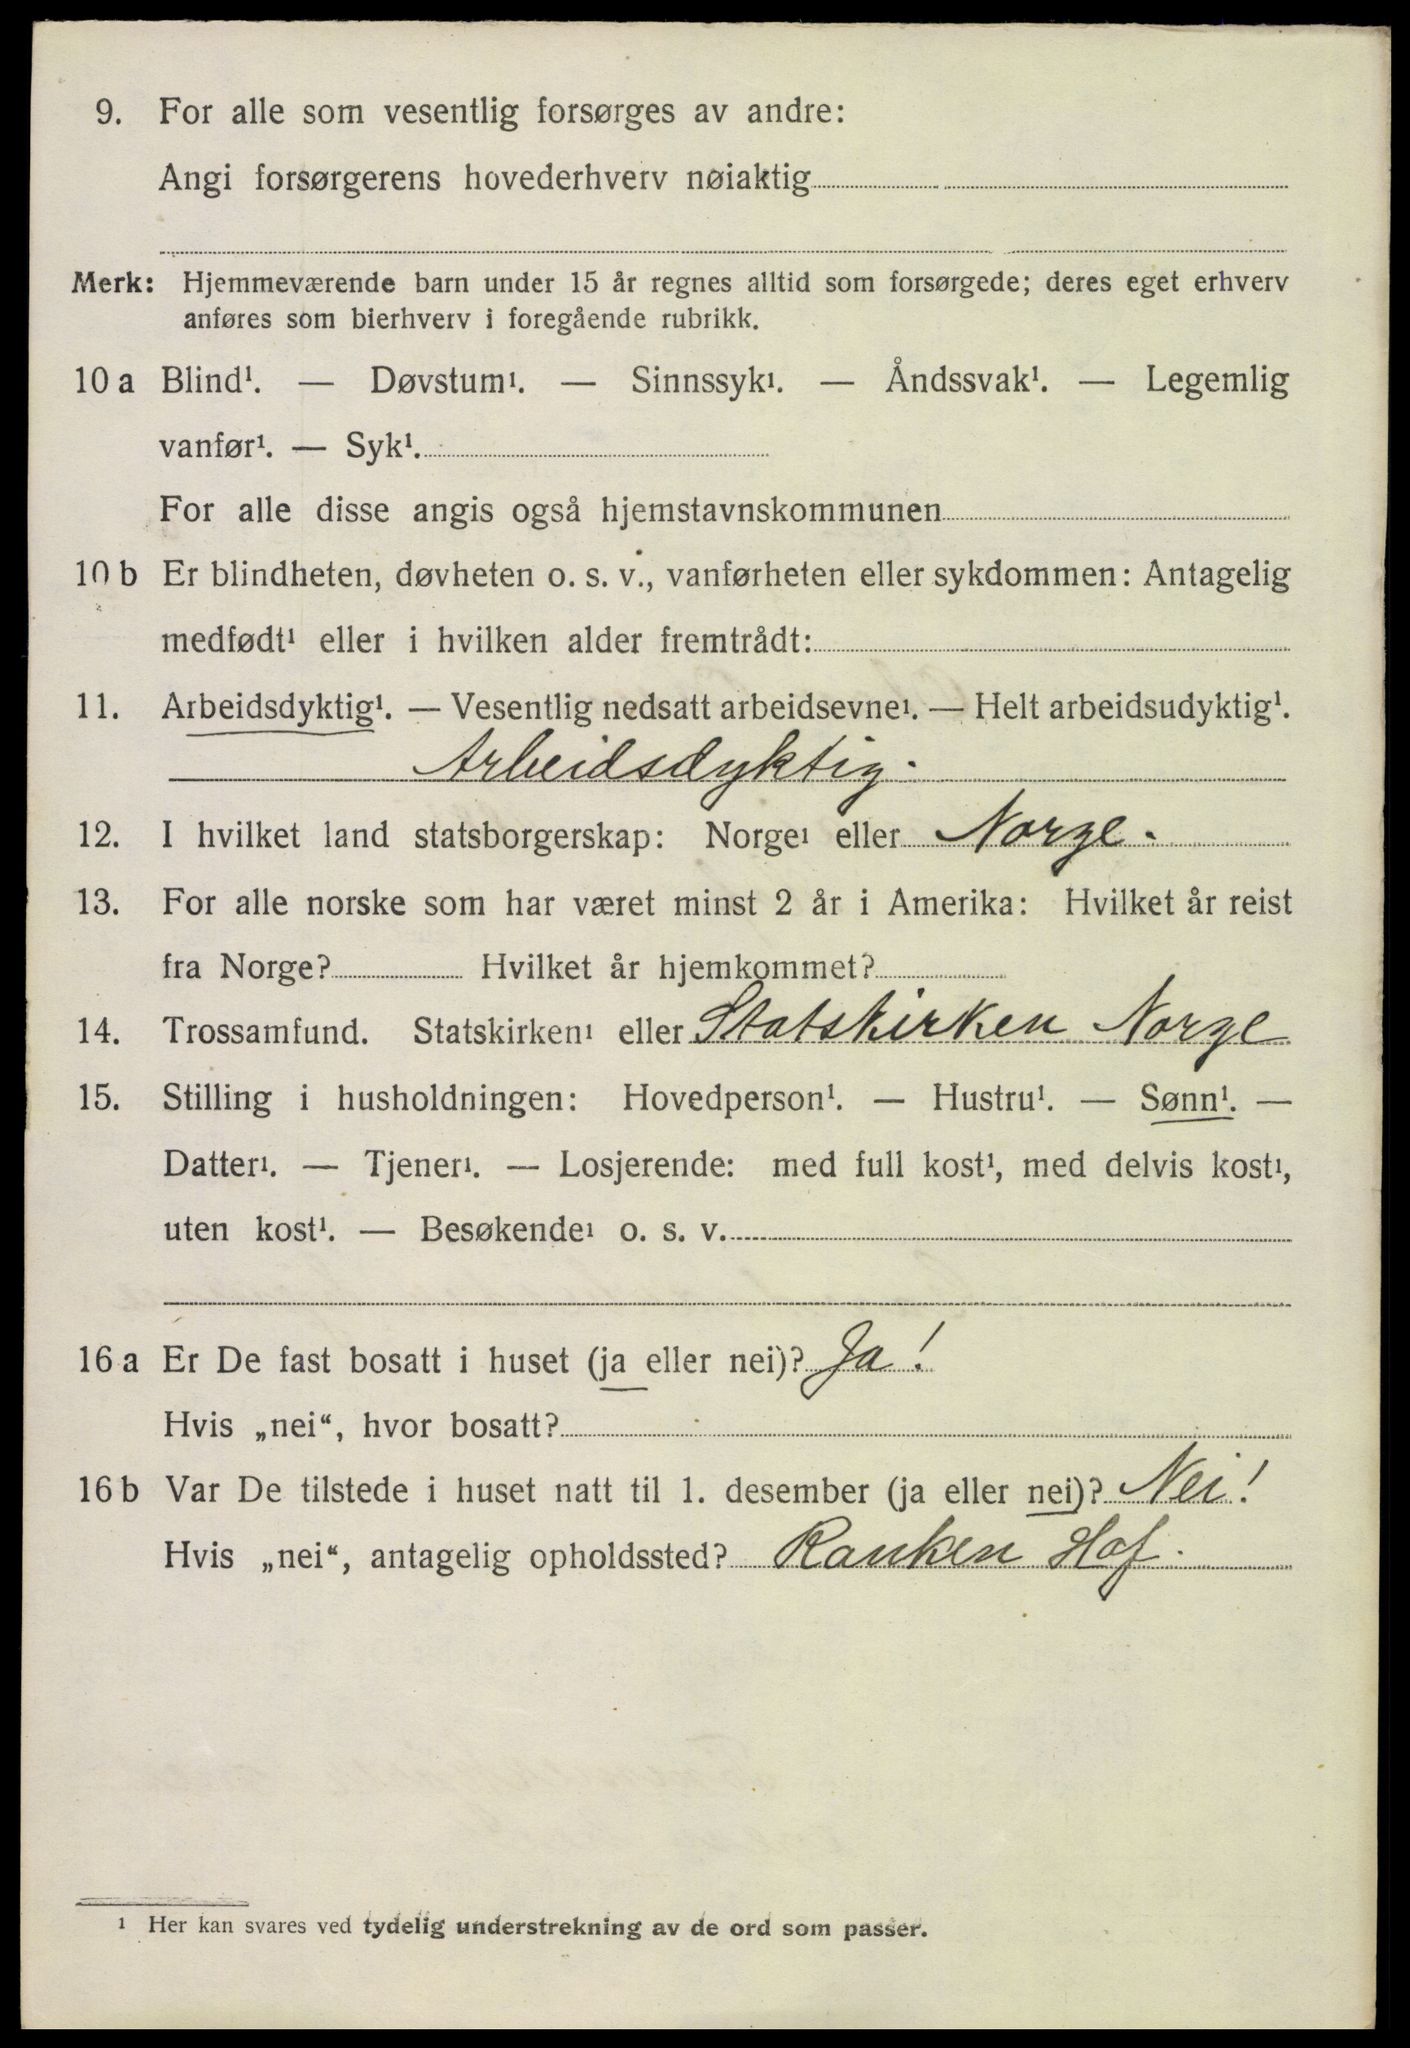 9. For alle som vesentlig forsørges av andre:
Angi forsørgerens hovederhverv nøiaktig
Merk: Hjemmeværende barn under 15 år regnes alltid som forsørgede; deres eget erhverv
anføres som bierhverv i foregående rubrikk.
10 a Blind¹. — Døvstum¹. — Sinnssyk¹. — Åndssvak¹. — Legemlig
vanfør¹. — Syk¹.
For alle disse angis også hjemstavnskommunen
10 b Er blindheten, døvheten o. s. v., vanførheten eller sykdommen: Antagelig
medfødt¹ eller i hvilken alder fremtrådt:
11. Arbeidsdyktig¹. — Vesentlig nedsatt arbeidsevne¹. — Helt arbeidsudyktig¹.
Arbeidsdyktig.
12. I hvilket land statsborgerskap: Norge¹ eller Norge.
13. For alle norske som har været minst 2 år i Amerika: Hvilket år reist
fra Norge? Hvilket år hjemkommet?
14. Trossamfund. Statskirken¹ eller Statskirken Norge
15. Stilling i husholdningen: Hovedperson¹. — Hustru¹. — Sønn¹. —
Datter¹. — Tjener¹. — Losjerende: med full kost¹, med delvis kost¹,
uten kost¹. — Besøkende¹ o. s. v.
16 a Er De fast bosatt i huset (ja eller nei)? Ja!
Hvis „nei“, hvor bosatt?
16 b Var De tilstede i huset natt til 1. desember (ja eller nei)? Nei!
Hvis „nei“, antagelig opholdssted? Ranken Hof.
¹ Her kan svares ved tydelig understrekning av de ord som passer.